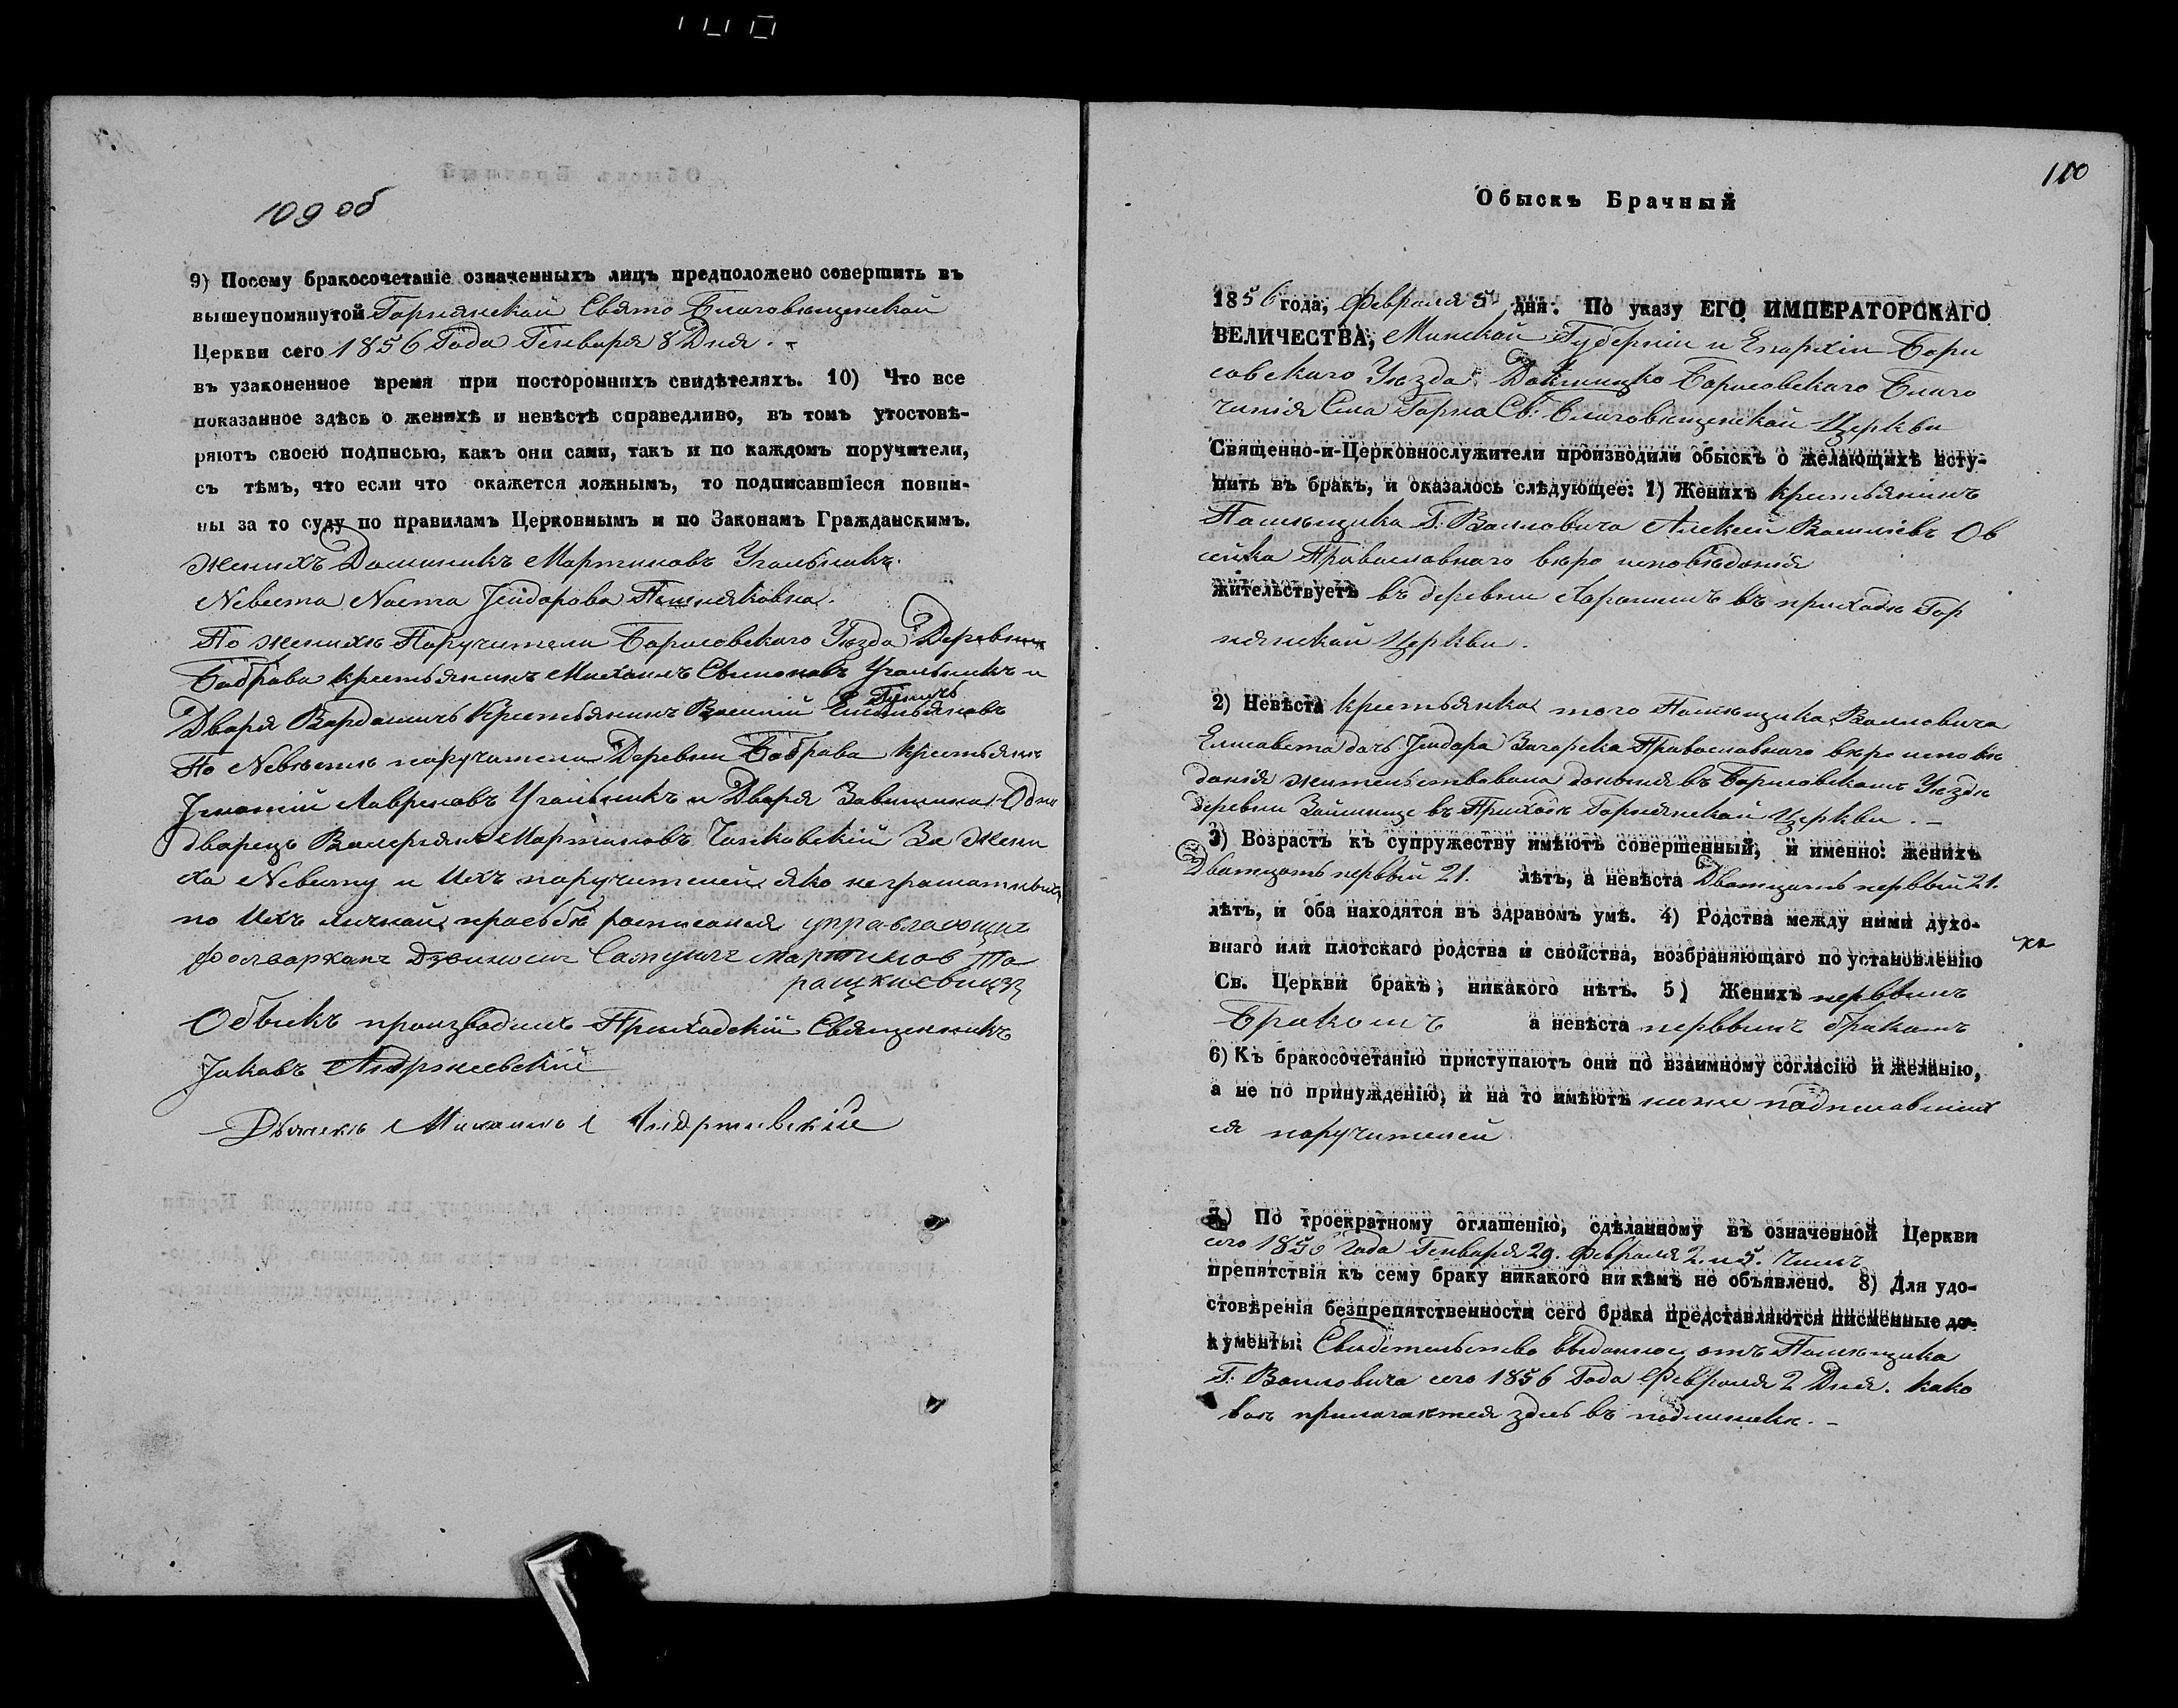 109 об
9) Посему бракосочетаніе означенныхъ лицъ предположено совершить въ
вышеупомянутой Горнянской Свято Благовѣщенской
Церкви сего 1856 Года Генваря 8 Дня.
въ узаконенное время при постороннихъ свидѣтеляхъ. 10) Что все
показанное здѣсь о женихѣ и невѣстѣ справедливо, въ томъ утостовѣ-
ряютъ своею подписью, какъ они сами, такъ и по каждомъ поручители,
съ тѣмъ, что если что окажется ложнымъ, то подписавшіеся повин-
ны за то суду по правиламъ Церковнымъ и по Законамъ Гражданскимъ.
женихъ Доминикъ Мартиновъ Угольникъ.
Nевѣста Nаста
По женихѣ Поручители Борисовскаго Уѣзда Деревни
Бабрава крестьянинъ Михаилъ Угольникъ и
Двара крестьянинъ Василій
По Nевѣстѣ поручители Деревни Бабрава крестьянъ
Игнатій Лавреновъ Угольникъ и Двара Одно
дварецъ Валерьянъ Мартиновъ За жени
ха Nевѣсту и Ихъ поручителей яко неграматныхъ
по Ихъ личной прозьбѣ управляющи
фолваркамъ Самуилъ Мартинов Та
рашкиевицз
Обыскъ производилъ Приходскій Священникъ
Іаковъ Андржеевскій
Дьячекъ Андржеевскій
110
Обыскъ Брачный
1856 года, Февраля 5 дня: По указу ЕГО ИМПЕРАТОРСКАГО
ВЕЛИЧЕСТВА, Минской Губерніи и Епархіи Бори
совскаго Уѣзда: Докшицко Борисовскаго Благо
чинія Села Горна Св: Благовѣщенской Церкви
Священно-и-Церковнослужители производили обыскъ о желающихъ всту-
пить въ бракъ, и оказалось слѣдующее: 1) Женихъ крестьянинъ
Помѣщика Г: Воловича Алексѣй Васильевъ Ов
сейка Православнаго вѣро исповѣданія
жительствуетъ въ деревни въ приходѣ Гор
нянской Церкви.
2) Невѣста крестьянка того Помѣщика Воловича
Елисавета дочь Ізидора Загорска Православнаго вѣро исповѣ
данія жительствовала донынѣ въ Борисовскомъ Уѣздѣ
деревни въ Приходѣ Горнянской Церкви.
3) Возрастъ къ супружеству имѣютъ совершенный, и именно: женихъ
Дватцать первый 21. лѣтъ, а невѣста Дватцать первый 21.
лѣтъ, и оба находятся въ здравомъ умѣ. 4) Родства между ними духо-
внаго или плотскаго родства и свойства, возбраняющаго по установленію
Св. Церкви бракъ, никакого нѣтъ. 5) Женихъ первымъ
Бракомъ а невѣста первымъ бракомъ
6) Къ бракосочетанію приступаютъ они по взаимному согласію и желанію,
а не по принужденію, и на то имѣютъ ниже подписавших
ся поручителей
7) По троекратному оглашенію, сдѣланному въ означенной Церкви
сего 1856 Года Генваря 29. Февраля 2. и 5. Чиселъ
препятствія къ сему браку никакого ни кѣмъ не объявлено. 8) Для удо-
стовѣренія безпрепятственности сего брака представляются писменные до-
кументы: Свидетельство выданное отъ Помѣщика
Г: Воловича сего 1856 Года Февраля 2 Дня. како
вое прилагается здесь въ подлинникѣ.